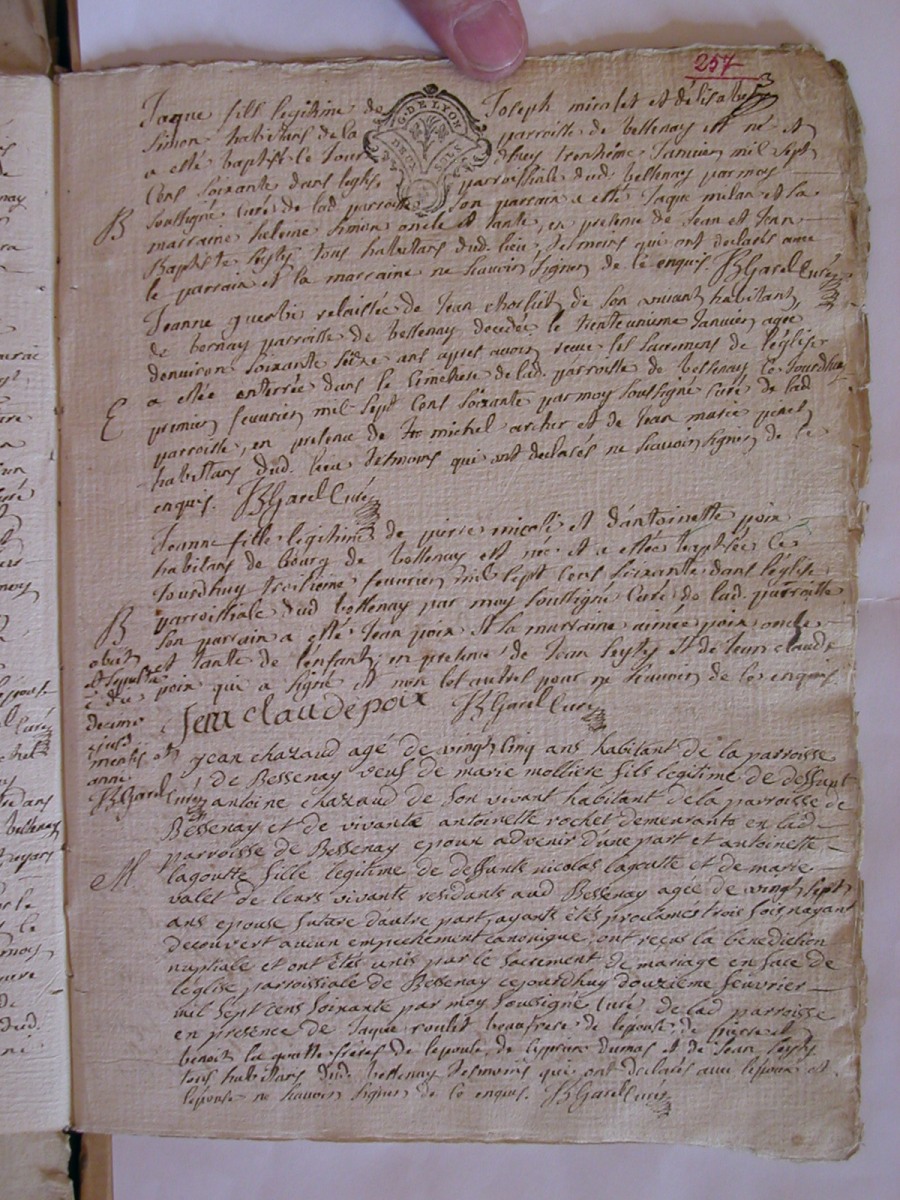 257
G. DE LYON
Jaque fils legitime de Joseph micolet et d'élisabeth
Simon habitans de la parroisse de bessenay est né et
a esté baptisé le jour dhuy trentième Janvier mil sept
Cens soixante dans leglise parroissiale dud. bessenay par moy
B
soussigné Curé de lad parroisse Son parrain a esté Jaque milan et la
marraine Simon oncle et tante, en presence de Jean et Jean
Baptiste peyty tous habitans dud. lieu, tesmoins qui ont declarés avec
le parrain et la marraine ne scavoir signer de ce enquis. JBGarel Curé
Jeanne guerbi relaissée de Jean de son vivant habitant
de bernay parroisse de bessenay decedée le trente unieme Janvier agée
denviron soixante seize ans apres avoir receu les sacremens de l'église
a estée enterrée dans le Cimetiere de lad. parroisse de bessenay ce Jourdhuy
E
premier fevrier mil sept Cens soixante par moy soussigné Curé de lad
parroisse, en presence de michel archer et de Jean marie pinet
habitans dud. lieu tesmoins qui ont declarés ne scavoir signer de ce
enquis. JBGarel Curé
Jeanne fille legitime de pierre micoli et d'antoinette poix
habitans de bourg de bessenay est née et a estée baptisée ce
Jourdhuy troisieme fevrier mil sept Cens soixante dans l'église
parroissiale dud bessenay par moy soussigné Curé de lad. parroisse
B
Son parrain a esté Jean poix et la marraine aimée poix oncle
et tante de l'enfant, en presence de Jean peyty et de Jean claude
poix qui a signé et non les autres pour ne scavoir de ce enquis
obiit
et sepulta
e die
decima
ejusd.
mensis et
anni
JBGarel curé
Jean claude poix JBGarel Curé
Jean chazaud agé de vingt cinq ans habitant de la parroisse
de Bessenay veuf de marie molliere fils legitime de deffunt
antoine chazaud de son vivant habitant de la parroisse de
Bessenay et de vivante antoinette rochet demeurante en lad
parroisse de Bessenay epoux advenir d'une part et antoinette
M
lagoutte fille legitime de deffunts nicolas lagoutte et de marie
valet de leurs vivants residants aud Bessenay agée de vingt sept
ans epouse future dautre part, ayants étés proclamés trois fois nayant
decouvert aucun empechement canonique, ont reçus la benediction
nuptiale et ont étés unis par le sacrement de mariage en face de
l'église parroissiale de Bessenay cejourdhuy douzieme feuvrier
mil sept cens soixante par moy soussigné Curé de lad parroisse
en presence de Jaque beaufrere de lepouse, de pierre et
benoit la goutte freres de lepouse, de dumas et de Jean peyty
tous habitans dud. bessenay tesmoins qui ont declarés avec lepoux et
lepouse ne scavoir signer de ce enquis. JBGarel curé